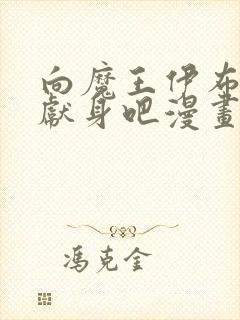 向魔王伊布
獻身吧漫畫
馮克金